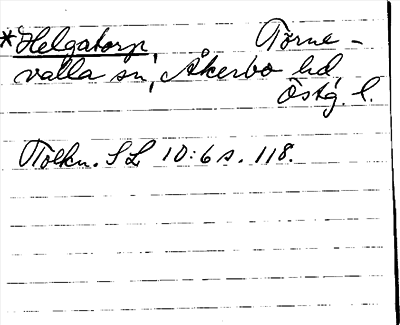 *Helgatorp, Törne-
valla sn, Åkerbo hd,
Östg. l.
Tolkn. SL 10:6 s. 118.